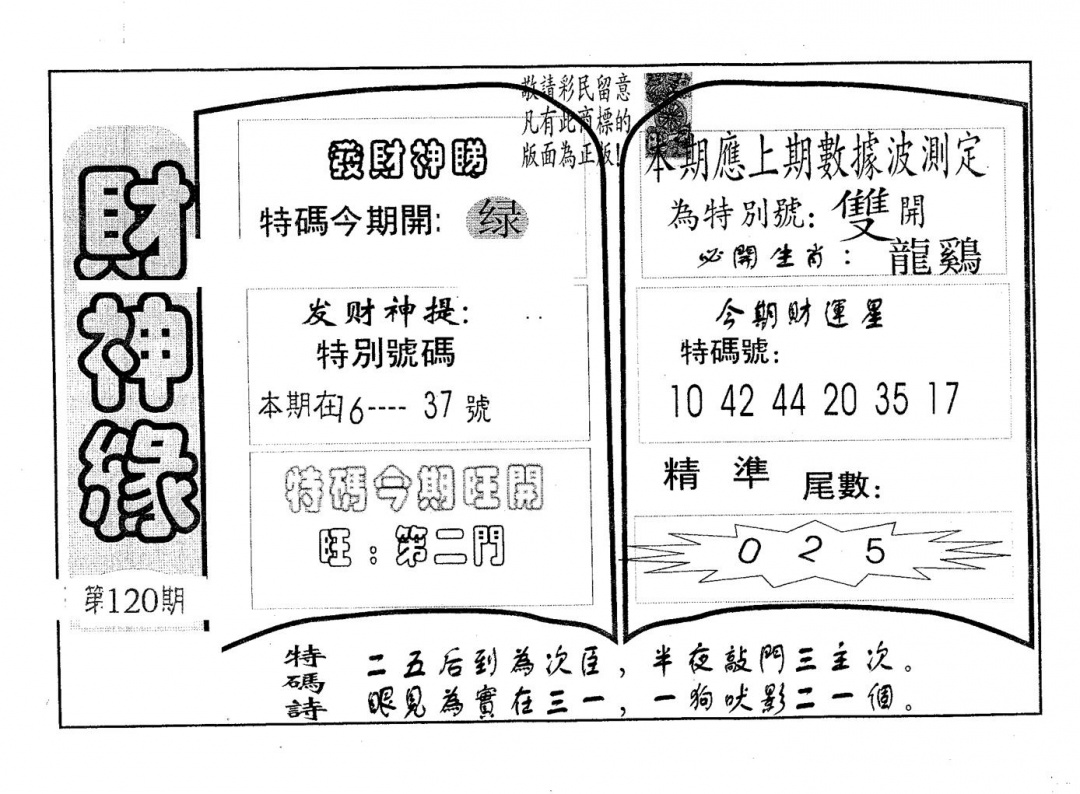 財神緣
第120期
敬請彩民留意
凡有此商標的
版面為正版!
發財神睇
特碼今期開: 绿
发财神提:
特別號碼
本期在16---- 37號
特碼今期旺開
旺：第二門
本期應上期數據波測定
為特別號: 雙開
必開生肖：龍鷄
今期財運星
特碼號:
10 42 44 20 35 17
精準 尾數:
0 2 5
特碼詩
二五后到為次臣，半夜敲門三主次。
眼見為實在三一，一狗吠影二一個。